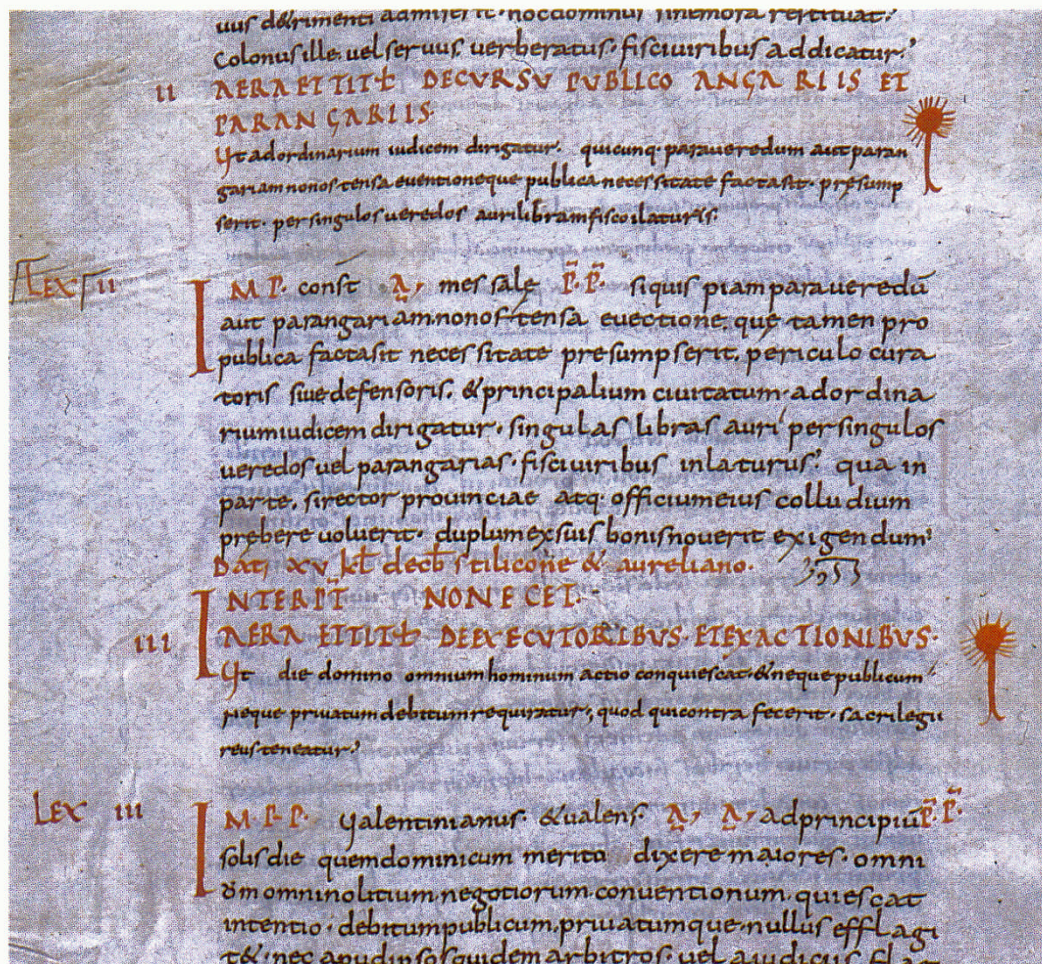 uus detrimenti admiserit. hoc dominus sine mora restituat.
Colonus ille. vel servus. verberatus. fisci viribus addicatur.
II AERA ET TITƚ DE CURSU PUBLICO ANGARIIS ET
PARANGARIIS.
Ut ad ordinarium iudicem dirigatur. quicunq; paraveredum aut paran
gariam non ostensa eventioneque publica necessitate facta sit. presump
serit. per singulos veredos auri libram fisco ilaturis.
LEX II IMP. const A, mes sale P̃. P̃. siquis piam paraveredū
aut parangariam non ostensa evectione. que tamen pro
publica facta sit necessitate presumpserit. periculo cura
toris sive defensoris. & principalium civitatum. ad ordina
rium iudicem dirigatur. singulas libras auri per singulos
veredos vel parangarias. fisci viribus inlaturus. qua in
parte. si rector provinciae atq. officium eius colludium
prębere voluerit. duplum ex suis bonis noverit exigendum.
Dat, xv kƚ decƀ stilicone & aureliano.
INTERPT̄ NON ECET.
III AERA ET TITƚ DE EXECUTORIBUS. ET EXACTIONIBUS.
Ut die domino omnium hominum actio conquiescat. & neque publicum
neque privatum debitum requiratur, quod qui contra fecerit. sacrilegii
reus teneatur.
LEX III IMP. P. Valentinianus. & valens. A, A, ad principiū P̃. P̃.
solis die quem dominicum merito dixere maiores. omni
um omnino litium. negotiorum. conventionum. quiescat
intentio. debitum publicum. privatumque. nullus efflagi
t&. nec apud ipsos quidem arbitros. vel a iudiciis flagi